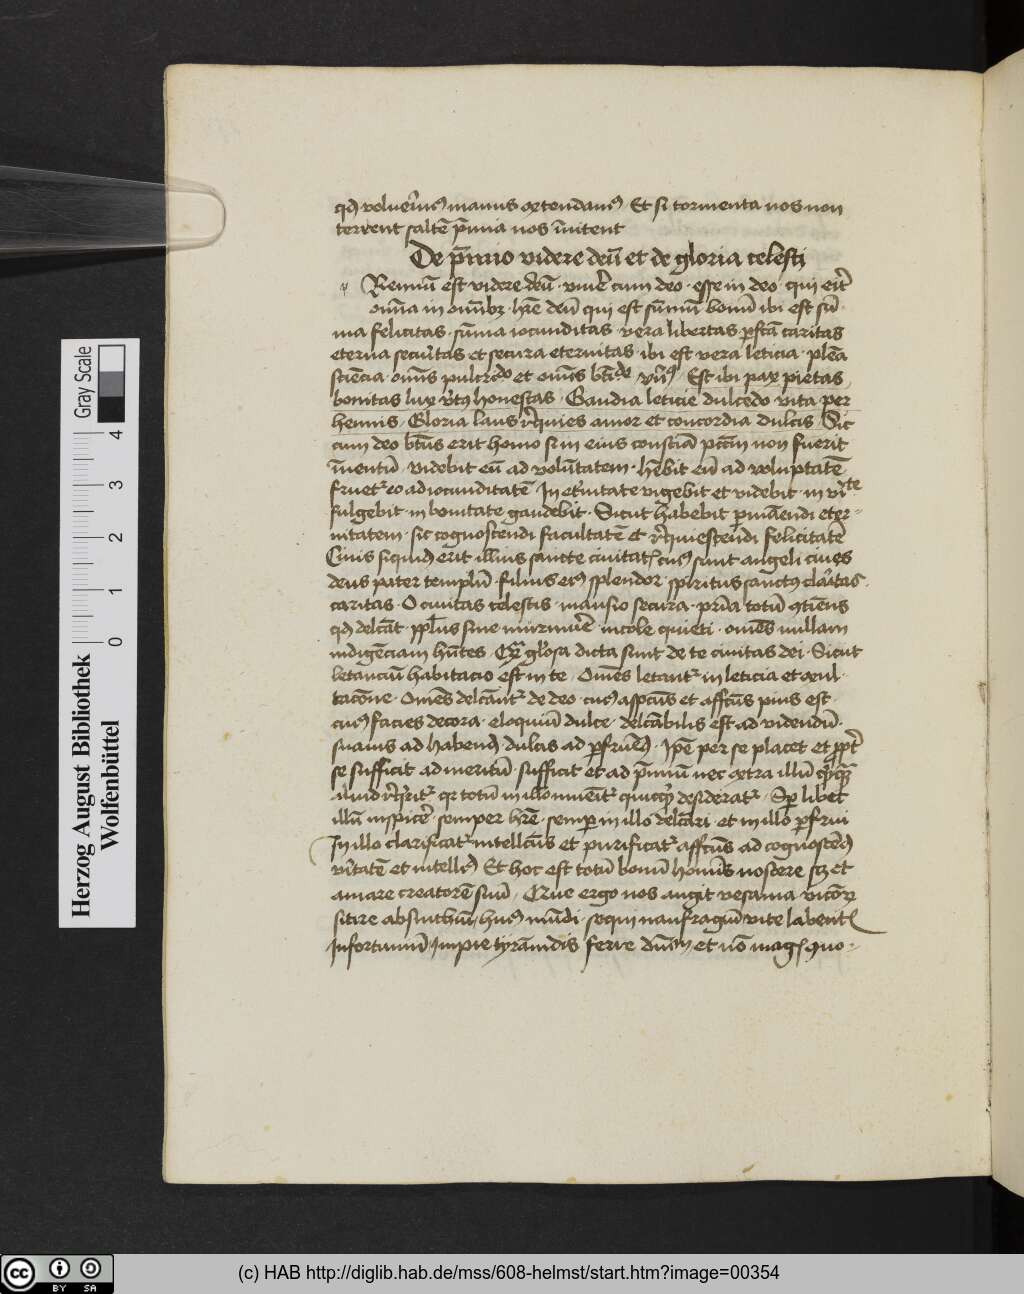 qd voluerimus manus extendamus Et si tormenta nos non
terrent saltē p̄mia nos īuitent
De p̄mio videre deū et de gloria celesti
p Remiū est videre deū · viuē cum deo · esse in deo · qui erit
om̄ia in om̄ibz · hr̄e deū qui est sūmū bonū ibi est sū
ma felicitas · sūma iocunditas vera libertas pfctā caritas
eterna secūitas et secura eternitas ibi est vera leticia · plēa
sciēcia · om̄is pulcrido et om̄is btīdo · Est ibi pax pietas
bonitas lux v̓tus honestas , Gaudia leticie dulcedo vita per
hennis , Gloria laus req̓uies amor et concordia dulcis / Sic
cum deo bt̄us erit homo si in eius consciā pctm̄ non fuerit
īuentū · videbit eū ad volūtatem · hēbit eū ad voluptatē
fruetr eo ad iocunditatē / In et̓nitate vigebit et videbit in v̓ite
fulgebit · in bonitate gaudebit · Sicut habebit pmānendi eter-
nitatem · sic cognoscendi facultatē et req̓uiescendi felicitatē
Ciuis siquid erit illius sancte ciuitatis cuius sunt angeli ciues
deus pater templū · filius eius splendor · spiritus sanctus claritas
caritas · O ciuitas celestis · mansio secura · pr̄ia totū 9tinēs
qd delcāt · pplus sine murmure · incole quieti · om̄es nullam
indigēciam hn̄tes / Q̄ gl̓iosa dicta sunt de te ciuitas dei · Sicut
letanciū habitacio est in te / Om̄es letantr in leticia et exul
tacōne · Om̄es delcāntr de deo · cuius aspectus et affectus pius est
cuius facies decora · eloquiū dulce · delcābilis est ad videndū ·
suauis ad habend · dulcis ad pfruend · Ip̄e per se placet et ppt̓
se sufficit ad meritū · sufficit et ad p̄miū nec extra illū q̓cq̄
aliud req̓ritr qr totū in illo inueitr quicqd desideratr / Sp libet
illū inspicē · semper hr̄e · semp in illo delcāri · et in illo pfrui
In illo clarificatr intellctūs et purificatr affctūs ad cognoscēd
v̓itatē et intelligd Et hoc est totū bonū homīs noscere sz et
amare creatorē suū / Que ergo nos angit vesania vicior
sitire absinthiū / huius mūdi · sequi naufragiū vite labentis
Infortuniū / Impie tyrānidis ferre dn̄iū et nō magis quo-
Herzog August Bibliothek
Wolfenbüttel
0 1 2 3 4
Gray Scale
cc BY SA
(c) HAB http://diglib.hab.de/mss/608-helmst/start.htm?image=00354